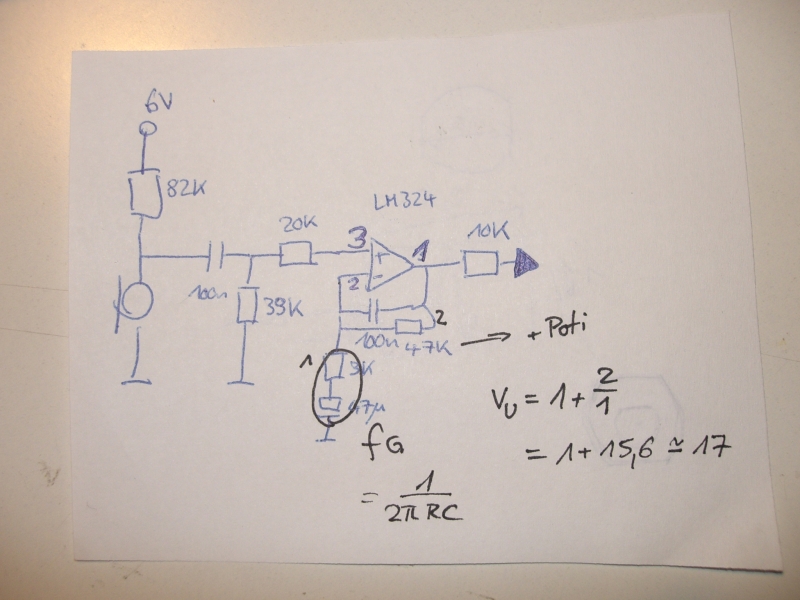 6V
82K
LM324
20K
3
1
10K
+
2
-
100n
39K
2
100n
47K
+ Poti
1
3K
47µ
Vu = 1 + 2/1
= 1 + 15,6 ≃ 17
fG
= 1/2πRC